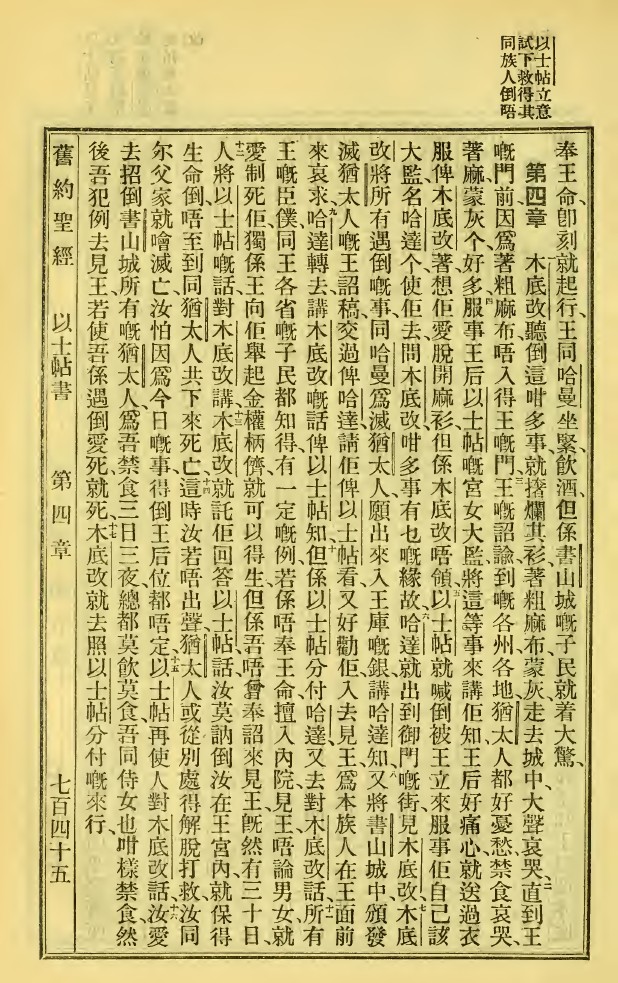 以士帖立意
試下救得其
同族人倒唔
奉王命、卽刻就起行、王同哈曼坐緊飲酒、但係書山城嘅子民就着大驚、
第四章 一木底改聽倒這咁多事、就搚爛其衫、著粗麻布、蒙灰走去城中、大聲哀哭、二直到王
嘅門前、因爲著粗麻布唔入得王嘅門、三王嘅詔諭到嘅各州各地、猶太人都好憂愁、禁食哀哭、
著麻蒙灰个好多、四服事王后以士帖嘅宮女大監、將這等事來講佢知、王后好痛心、就送過衣
服俾木底改著、想佢愛脫開麻衫、但係木底改唔領、五以士帖就喊倒被王立來服事佢自己該
大監、名哈達个、使佢去問木底改、咁多事有乜嘅緣故、六哈達就出到御門嘅街、見木底改、七木底
改將所有遇倒嘅事、同哈曼爲滅猶太人、願出來入王庫嘅銀、講哈達知、八又將書山城中頒發
滅猶太人嘅王詔稿、交過俾哈達、請佢俾以士帖看、又好勸佢入去見王、爲本族人在王面前
來哀求、九哈達轉去講木底改嘅話俾以士帖知、十但係以士帖分付哈達、又去對木底改話、十一所有
王嘅臣僕、同王各省嘅子民都知得、有一定嘅例、若係唔奉王命、擅入內院見王、唔論男女、就
愛制死佢、獨係王向佢舉起金權柄、儕就可以得生、但係吾唔曾奉詔來見王、旣然有三十日、
十二人將以士帖嘅話、對木底改講、十三木底改就託佢回答以士帖話、汝莫訥倒汝在王宮內、就保得
生命、倒唔至到同猶太人共下來死亡、十四這時汝若唔出聲、猶太人或從別處得解脫打救、汝同
尔父家就噲滅亡、汝怕因爲今日嘅事、得倒王后位都唔定、十五以士帖再使人對木底改話、十六汝愛
去招倒書山城所有嘅猶太人、爲吾禁食三日三夜、總都莫飲莫食、吾同侍女也咁樣禁食、然
後吾犯例去見王、若使吾係遇倒愛死就死、十七木底改就去照以士帖分付嘅來行、
舊約聖經 以士帖書 第四章 七百四十五